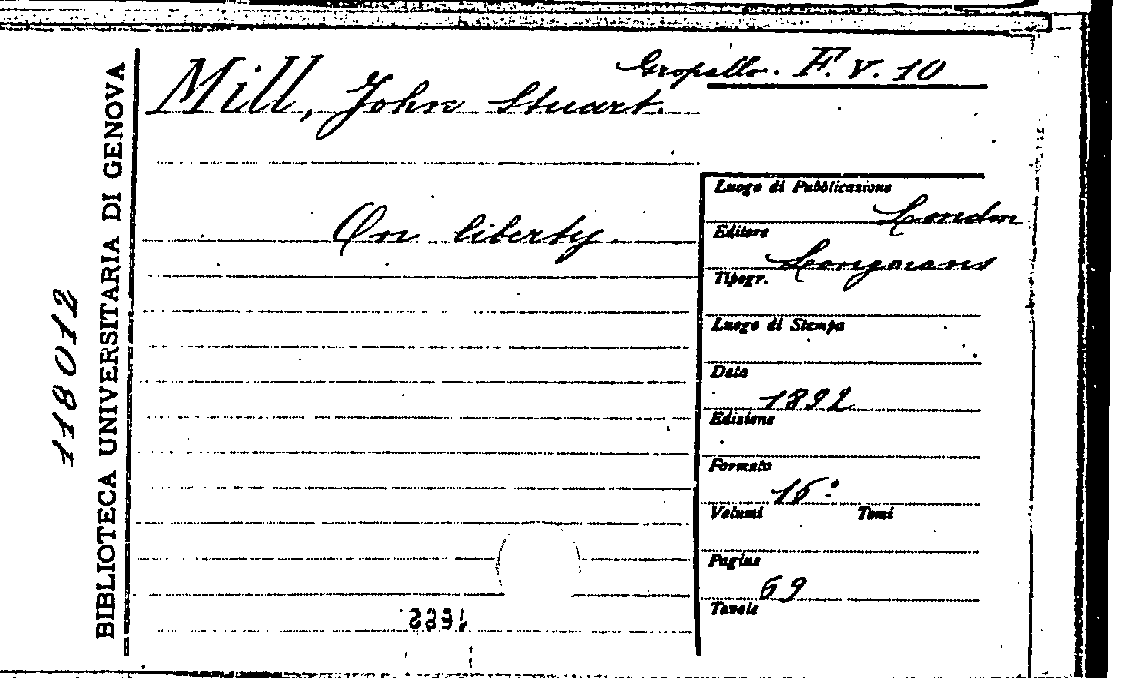 Gropallo. F. V. 10
Mill, John Stuart.
On liberty.
Luogo di Pubblicazione
London
Editore
Longmans
Tipogr.
Luogo di Stampa
Data
1892
Edizione
Formato
16°
Volumi Tomi
Pagine
69
Tavole
BIBLIOTECA UNIVERSITARIA DI GENOVA
118012